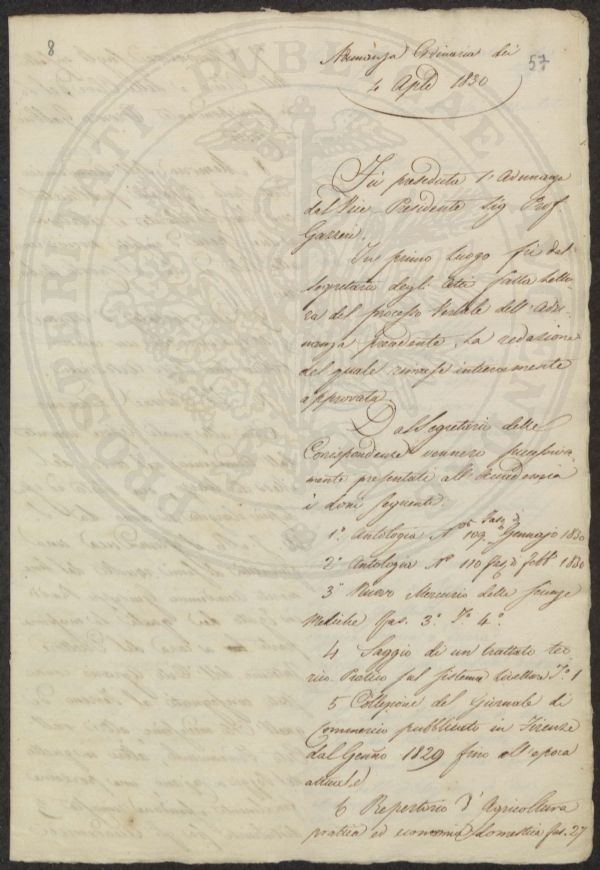 8
57
Adunanza Ordinaria dei
4 Aple 1830
Fù preseduta l'Adunanza
dal Vice-Presidente Sig. Prof.
Gazzeri.
In primo luogo fù dal
Segretario degli Atti fatta lettu-
ra del processo Verbale dell'Adu-
nanza precedente, la redazione
del quale rimase intieramente
approvata.
Dal Segretario delle
Corrispondenze vennero successiva-
mente presentati all'Accademia
i doni seguenti.
1.° Antologia N.° 109. Fasc. di Gennajo 1830
2.° Antologia N.° 110 Fas. di Febb. 1830
3.° Nuovo Mercurio delle scienze
Mediche Fas. 3.° T.° 4.°
4 Saggio di un trattato teo-
rico-Pratico sul sistema livellare T.° 1
5 Collezione del Giornale di
Commercio pubblicato in Firenze
dal Genn.o 1829 fino all'epoca
attuale
6 Repertorio d'Agricoltura
pratica ed economia domestica fas. 27
PROSPERITATI PUBLICAE